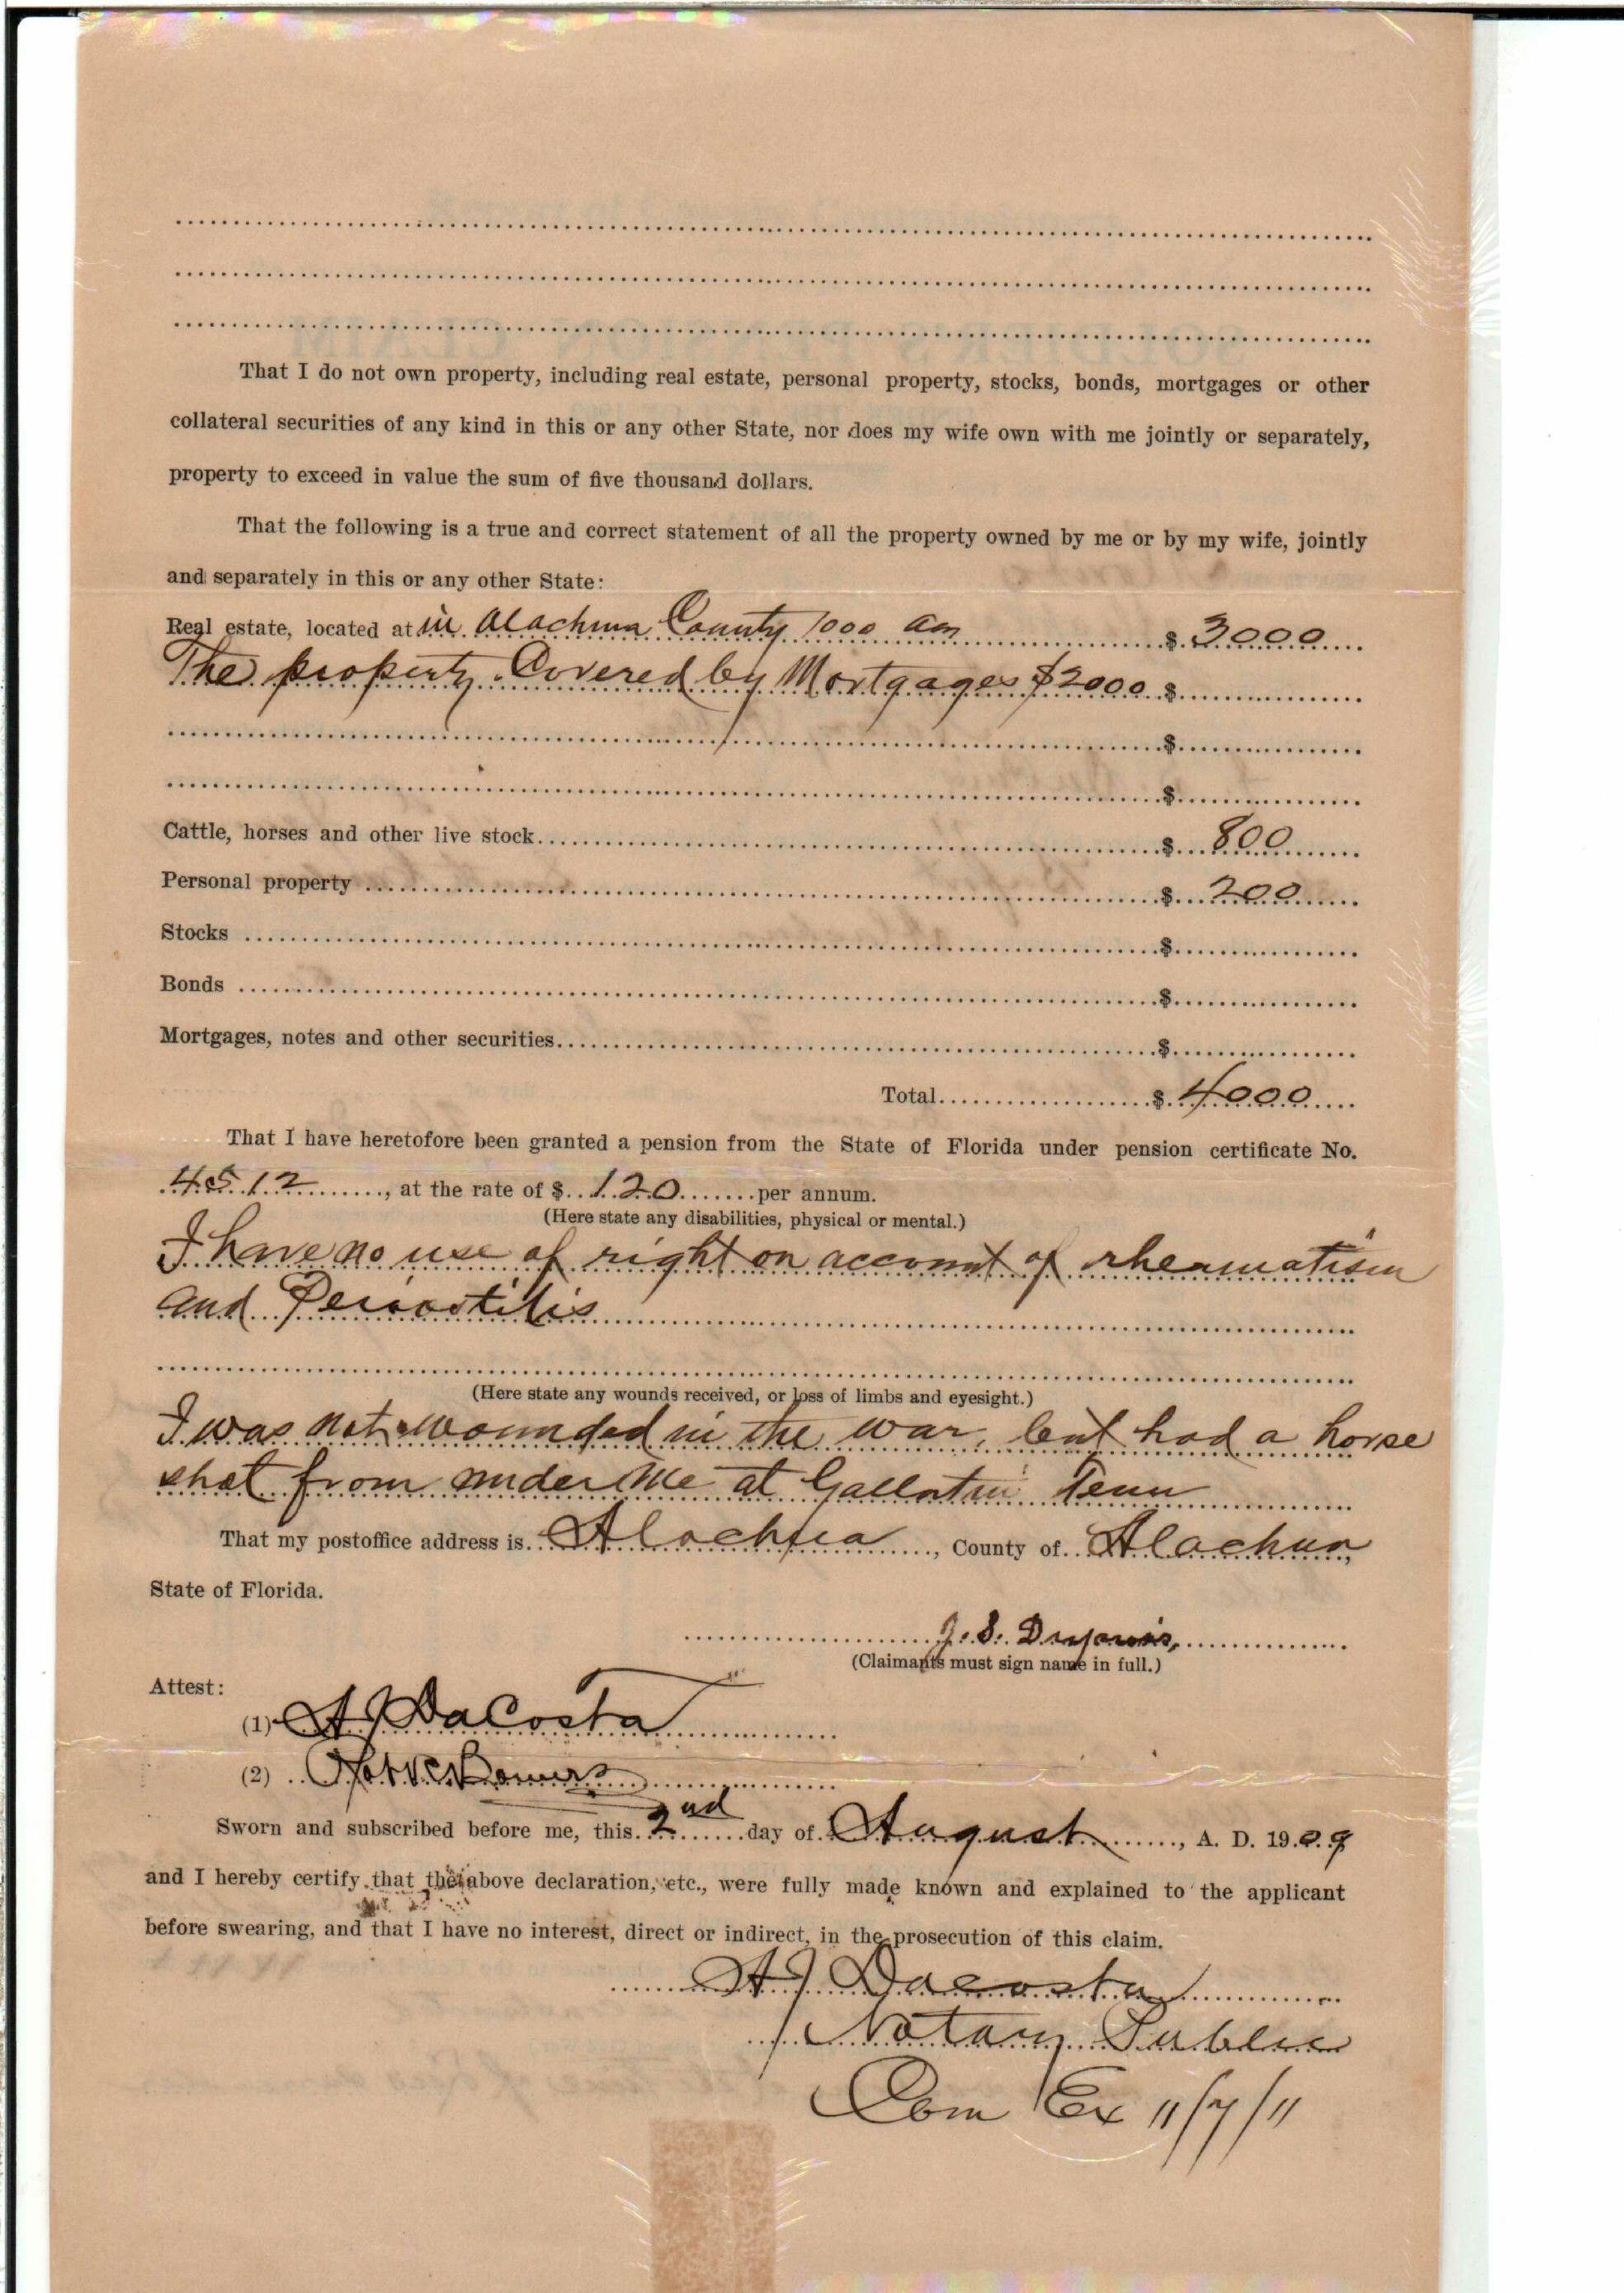 That I do not own property, including real estate, personal property, stocks, bonds, mortgages or other
collateral securities of any kind in this or any other State, nor does my wife own with me jointly or separately,
property to exceed in value the sum of five thousand dollars.
That the following is a true and correct statement of all the property owned by me or by my wife, jointly
and separately in this or any other State:
Real estate, located at in Alachua County 1000 $ 3000
The property Covered by Mortgages $2000 $
$
$
Cattle, horses and other live stock $ 800
Personal property $ 200
Stocks $
Bonds $
Mortgages, notes and other securities $
Total $ 4000
That I have heretofore been granted a pension from the State of Florida under pension certificate No.
4512, at the rate of $ 120 per annum.
(Here state any disabilities, physical or mental.)
I have no use of right on account of rheumatism
and Periostitis
(Here state any wounds received, or loss of limbs and eyesight.)
I was not wounded in the war, but had a horse
shot from under me at Gallatin Tenn
That my postoffice address is Alachua, County of Alachua,
State of Florida.
J. S.
(Claimants must sign name in full.)
Attest:
(1) A J DaCosta
(2) Bowers
Sworn and subscribed before me, this 2nd day of August, A. D. 1909
and I hereby certify that the above declaration, etc., were fully made known and explained to the applicant
before swearing, and that I have no interest, direct or indirect, in the prosecution of this claim.
A J Dacosta
Notary Public
Com Ex 11/7/11